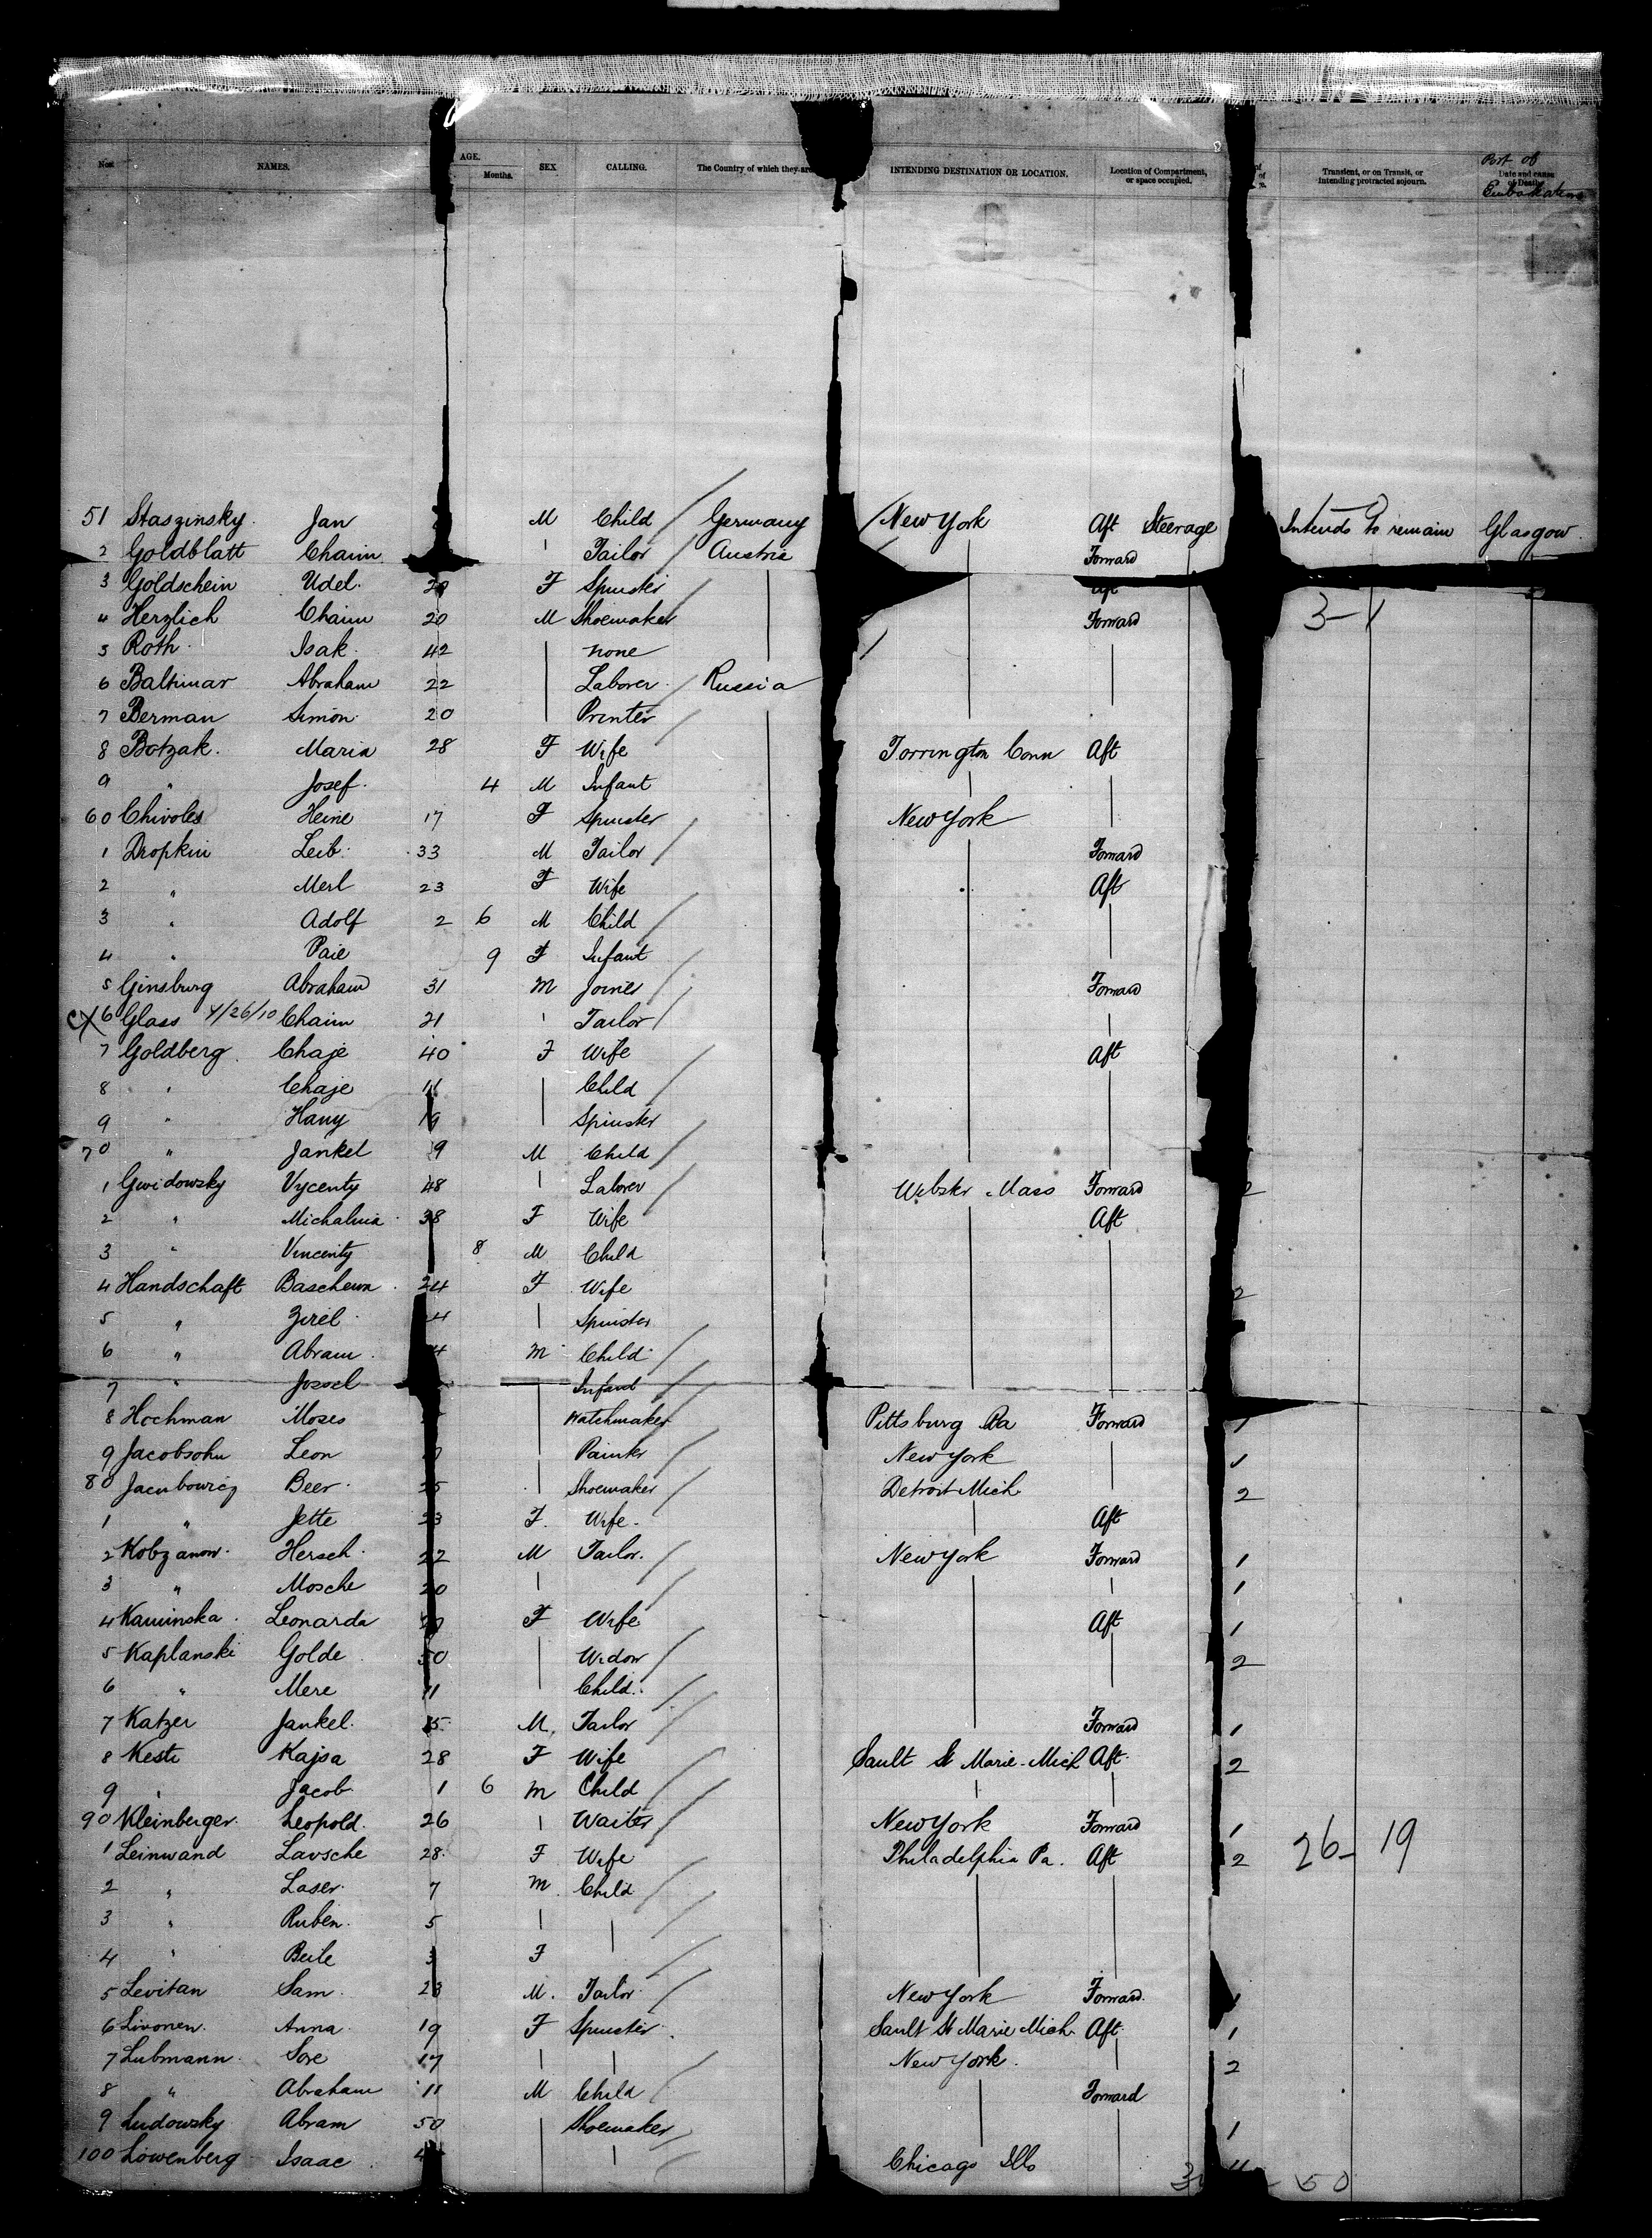 Nos. NAMES. AGE. Months. SEX CALLING. The Country of which they are INTENDING DESTINATION OR LOCATION. Location of Compartment, or space occupied. Transient, or on Transit, or intending protracted sojourn. Date and cause of Death. Port of Embarkation
51 Staszinsky Jan M Child Germany New York Aft Steerage Intends to remain Glasgow
2 Goldblatt Chaim Tailor Austria Forward
3 Goldschein Udel F Spinster Aft
4 Herzlich Chaim 20 M Shoemaker Forward 3-1
5 Roth Isak 42 none
6 Baltimar Abraham 22 Laborer Russia
7 Berman Simon 20 Printer
8 Botzak Maria 28 F Wife Torrington Conn Aft
9 " Josef 4 M Infant
60 Chivoles Heine 17 F Spinster New York
1 Dropkin Leib 33 M Tailor Forward
2 " Merl 23 F Wife Aft
3 " Adolf 2 6 M Child
4 " Paie 9 F Infant
5 Ginsburg Abraham 31 M Joiner Forward
6 Glass 4/26/10 Chaim 21 Tailor
7 Goldberg Chaje 40 F Wife Aft
8 " Chaje 11 Child
9 " Hany 19 Spinster
70 " Jankel 9 M Child
1 Gwidowsky Vycenty 48 Laborer Webster Mass Forward 2
2 " Michalina 38 F Wife Aft
3 " Vincenty 8 M Child
4 Handschaft Baschewa 24 F Wife 2
5 " Zirel Spinster
6 " Abram 4 M Child
7 " Jossel Infant
8 Hochman Moses Watchmaker Pittsburg Pa Forward 1
9 Jacobsohn Leon Painter New York 1
80 Jacubowicz Beer 25 Shoemaker Detroit Mich 2
1 " Jette 23 F Wife Aft
2 Kobzanow Hersch 22 M Tailor New York Forward 1
3 " Mosche 20 1
4 Kaminska Leonarda F Wife Aft 1
5 Kaplanski Golde 50 Widow 2
6 " Mere 11 Child
7 Katzer Jankel 15 M Tailor Forward 1
8 Kesti Kajsa 28 F Wife Sault St Marie Mich Aft 2
9 " Jacob 1 6 M Child
90 Kleinberger Leopold 26 Waiter New York Forward 1
1 Leinwand Lavsche 28 F Wife Philadelphia Pa. Aft 2 26-19
2 " Laser 7 M Child
3 " Ruben 5
4 " Beile 3 F
5 Levitan Sam 23 M Tailor New York Forward 1
6 Livonen Anna 19 F Spinster Sault St Marie Mich Aft 1
7 Lubmann Sore 17 New York 2
8 " Abraham 11 M Child Forward
9 Ludowsky Abram 50 Shoemaker 1
100 Löwenberg Isaac Chicago Ills
50